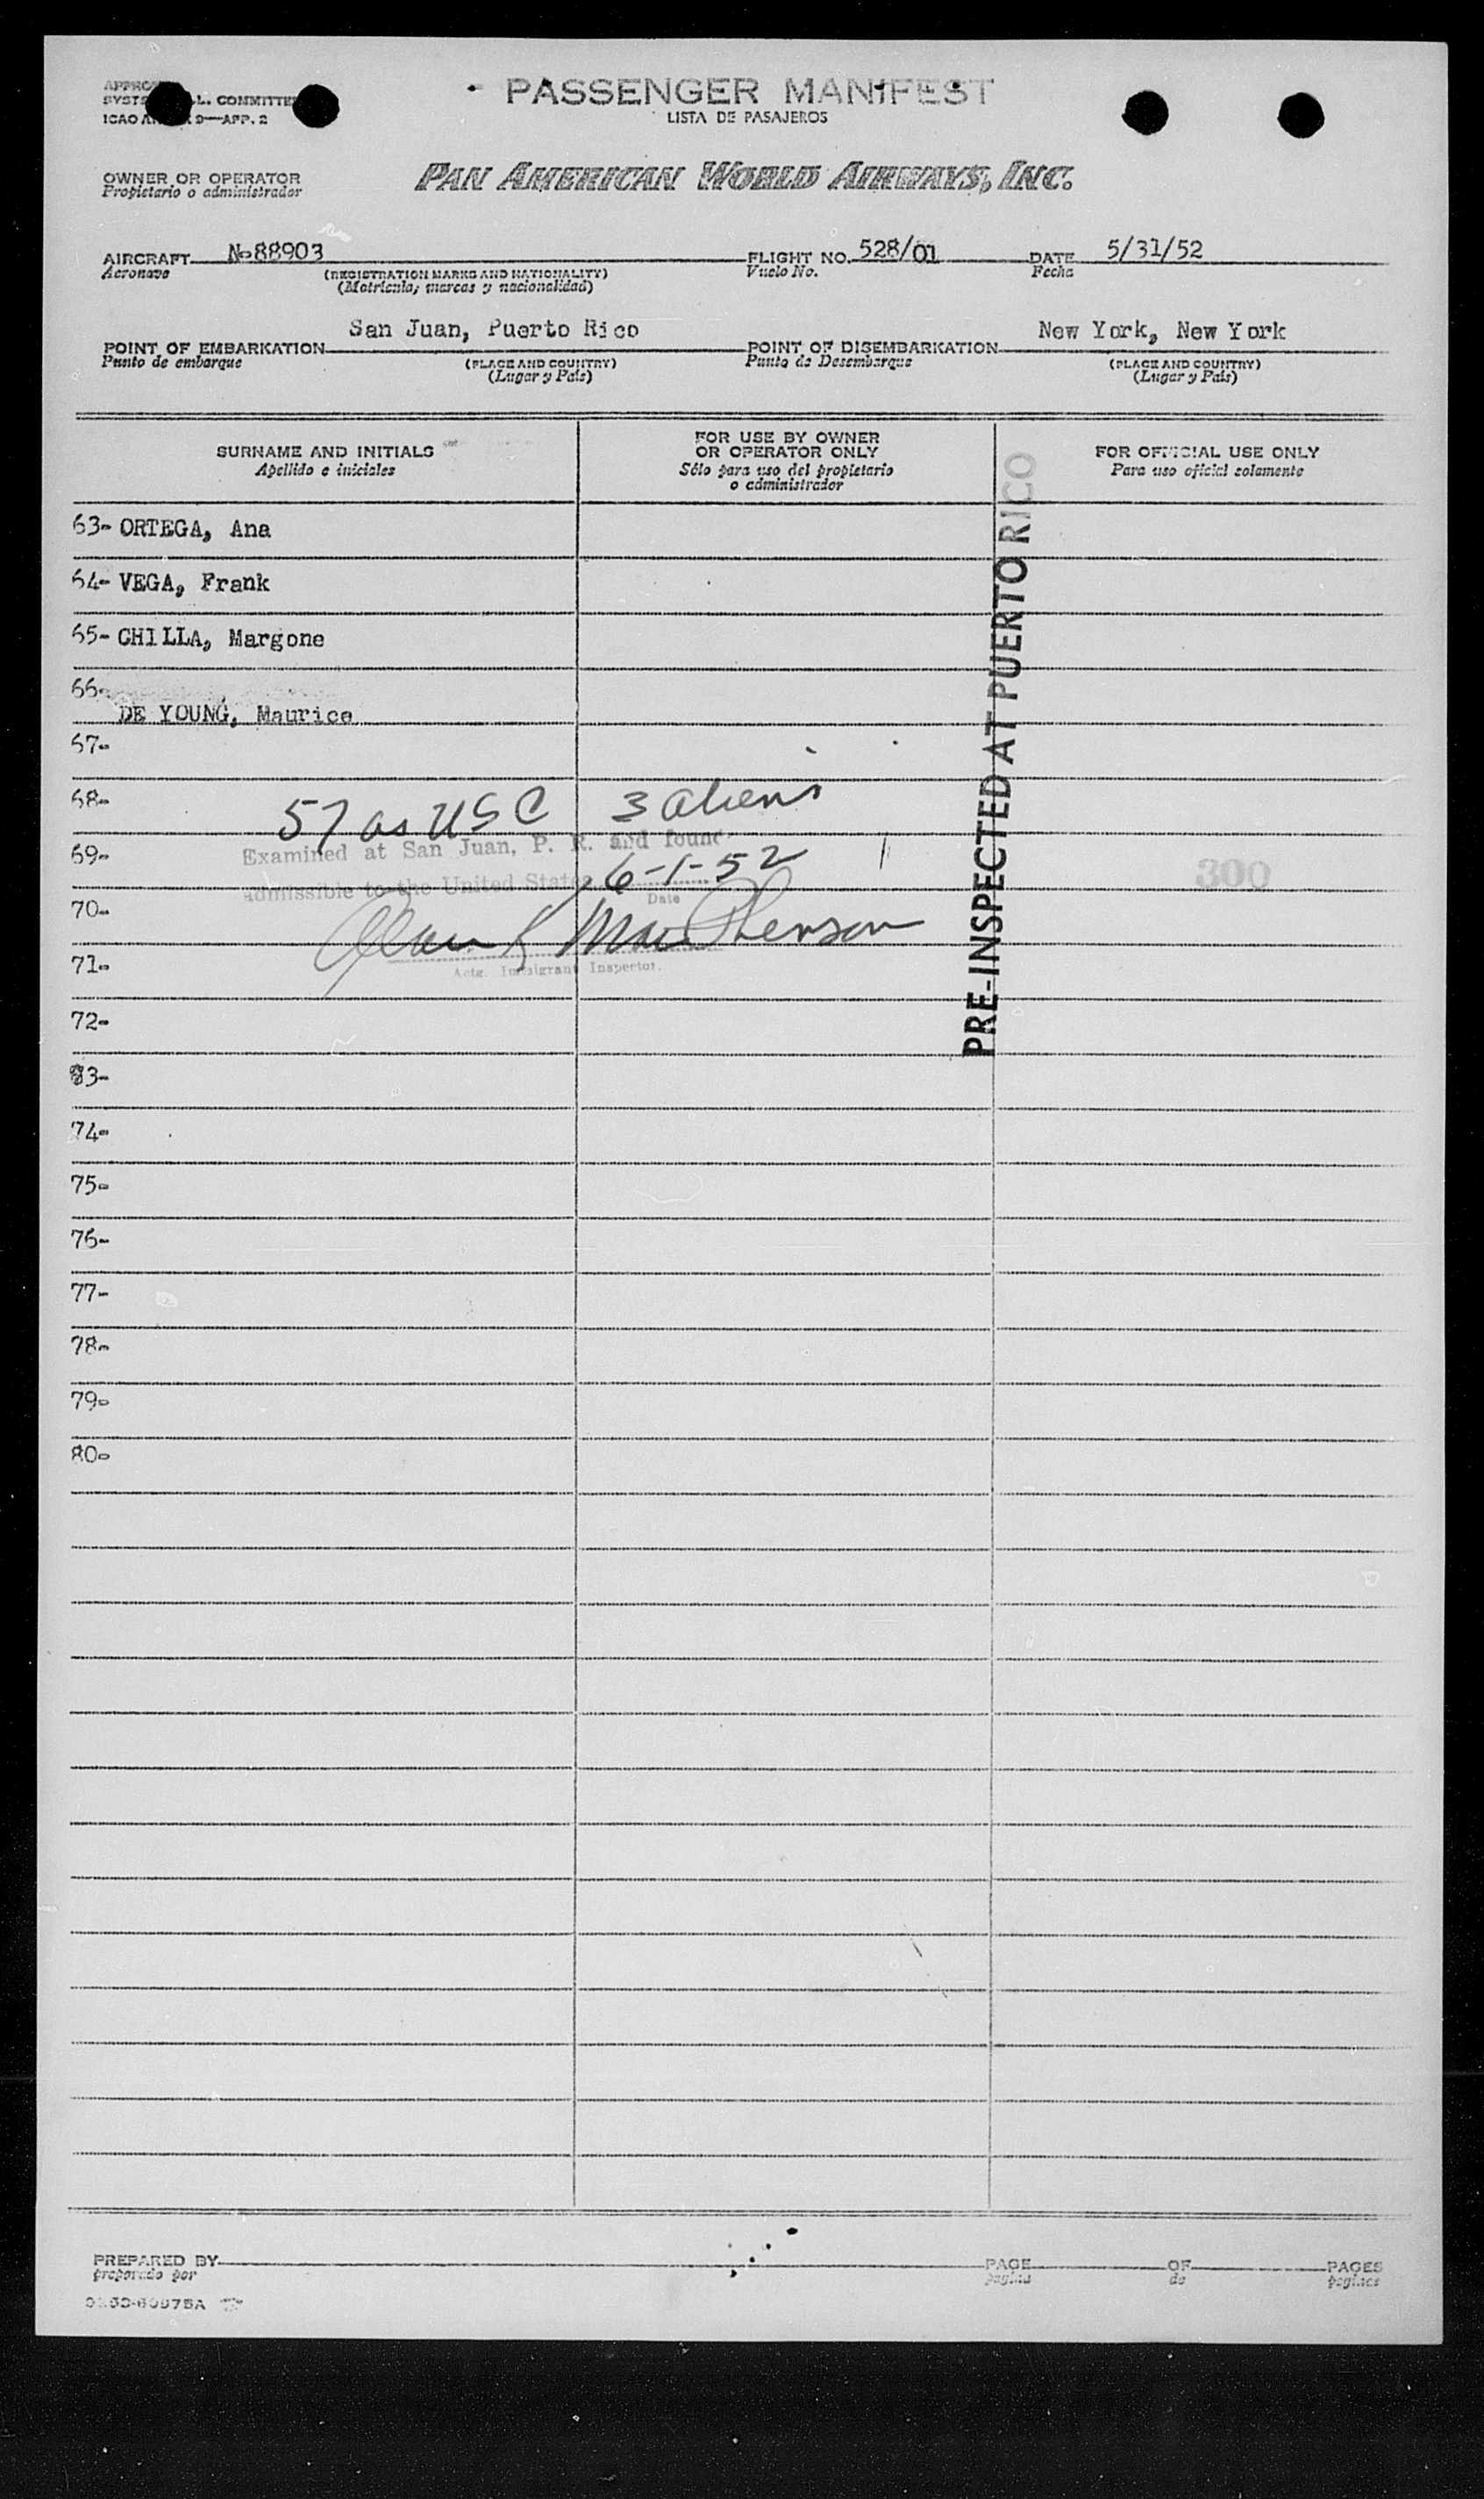 PASSENGER MANIFEST
LISTA DE PASAJEROS
L. COMMITTEE
ICAO 9—APP. 2
OWNER OR OPERATOR
Propietario o administrador
PAN AMERICAN WORLD AIRWAYS, INC.
AIRCRAFT No88903 FLIGHT NO. 528/01 DATE 5/31/52
Aeronave (REGISTRATION MARKS AND NATIONALITY) Vuelo No. Fecha
(Matrícula, marcas y nacionalidad)
POINT OF EMBARKATION San Juan, Puerto Rico POINT OF DISEMBARKATION New York, New York
Punto de embarque (PLACE AND COUNTRY) Punto de Desembarque (PLACE AND COUNTRY)
(Lugar y País) (Lugar y País)
SURNAME AND INITIALS
Apellido e iniciales
FOR USE BY OWNER
OR OPERATOR ONLY
Sólo para uso del propietario
o administrador
FOR OFFICIAL USE ONLY
Para uso oficial solamente
63- ORTEGA, Ana
64- VEGA, Frank
65- CHILLA, Margone
66-
DE YOUNG, Maurice
67-
68-
57 as USC 3 aliens
69-
Examined at San Juan, P. R. and found
admissible to the United States 6-1-52
Date
300
70-
71-
Actg. Immigrant Inspector.
PRE-INSPECTED AT PUERTO RICO
72-
73-
74-
75-
76-
77-
78-
79-
80-
PREPARED BY PAGE OF PAGES
preparado por página de páginas